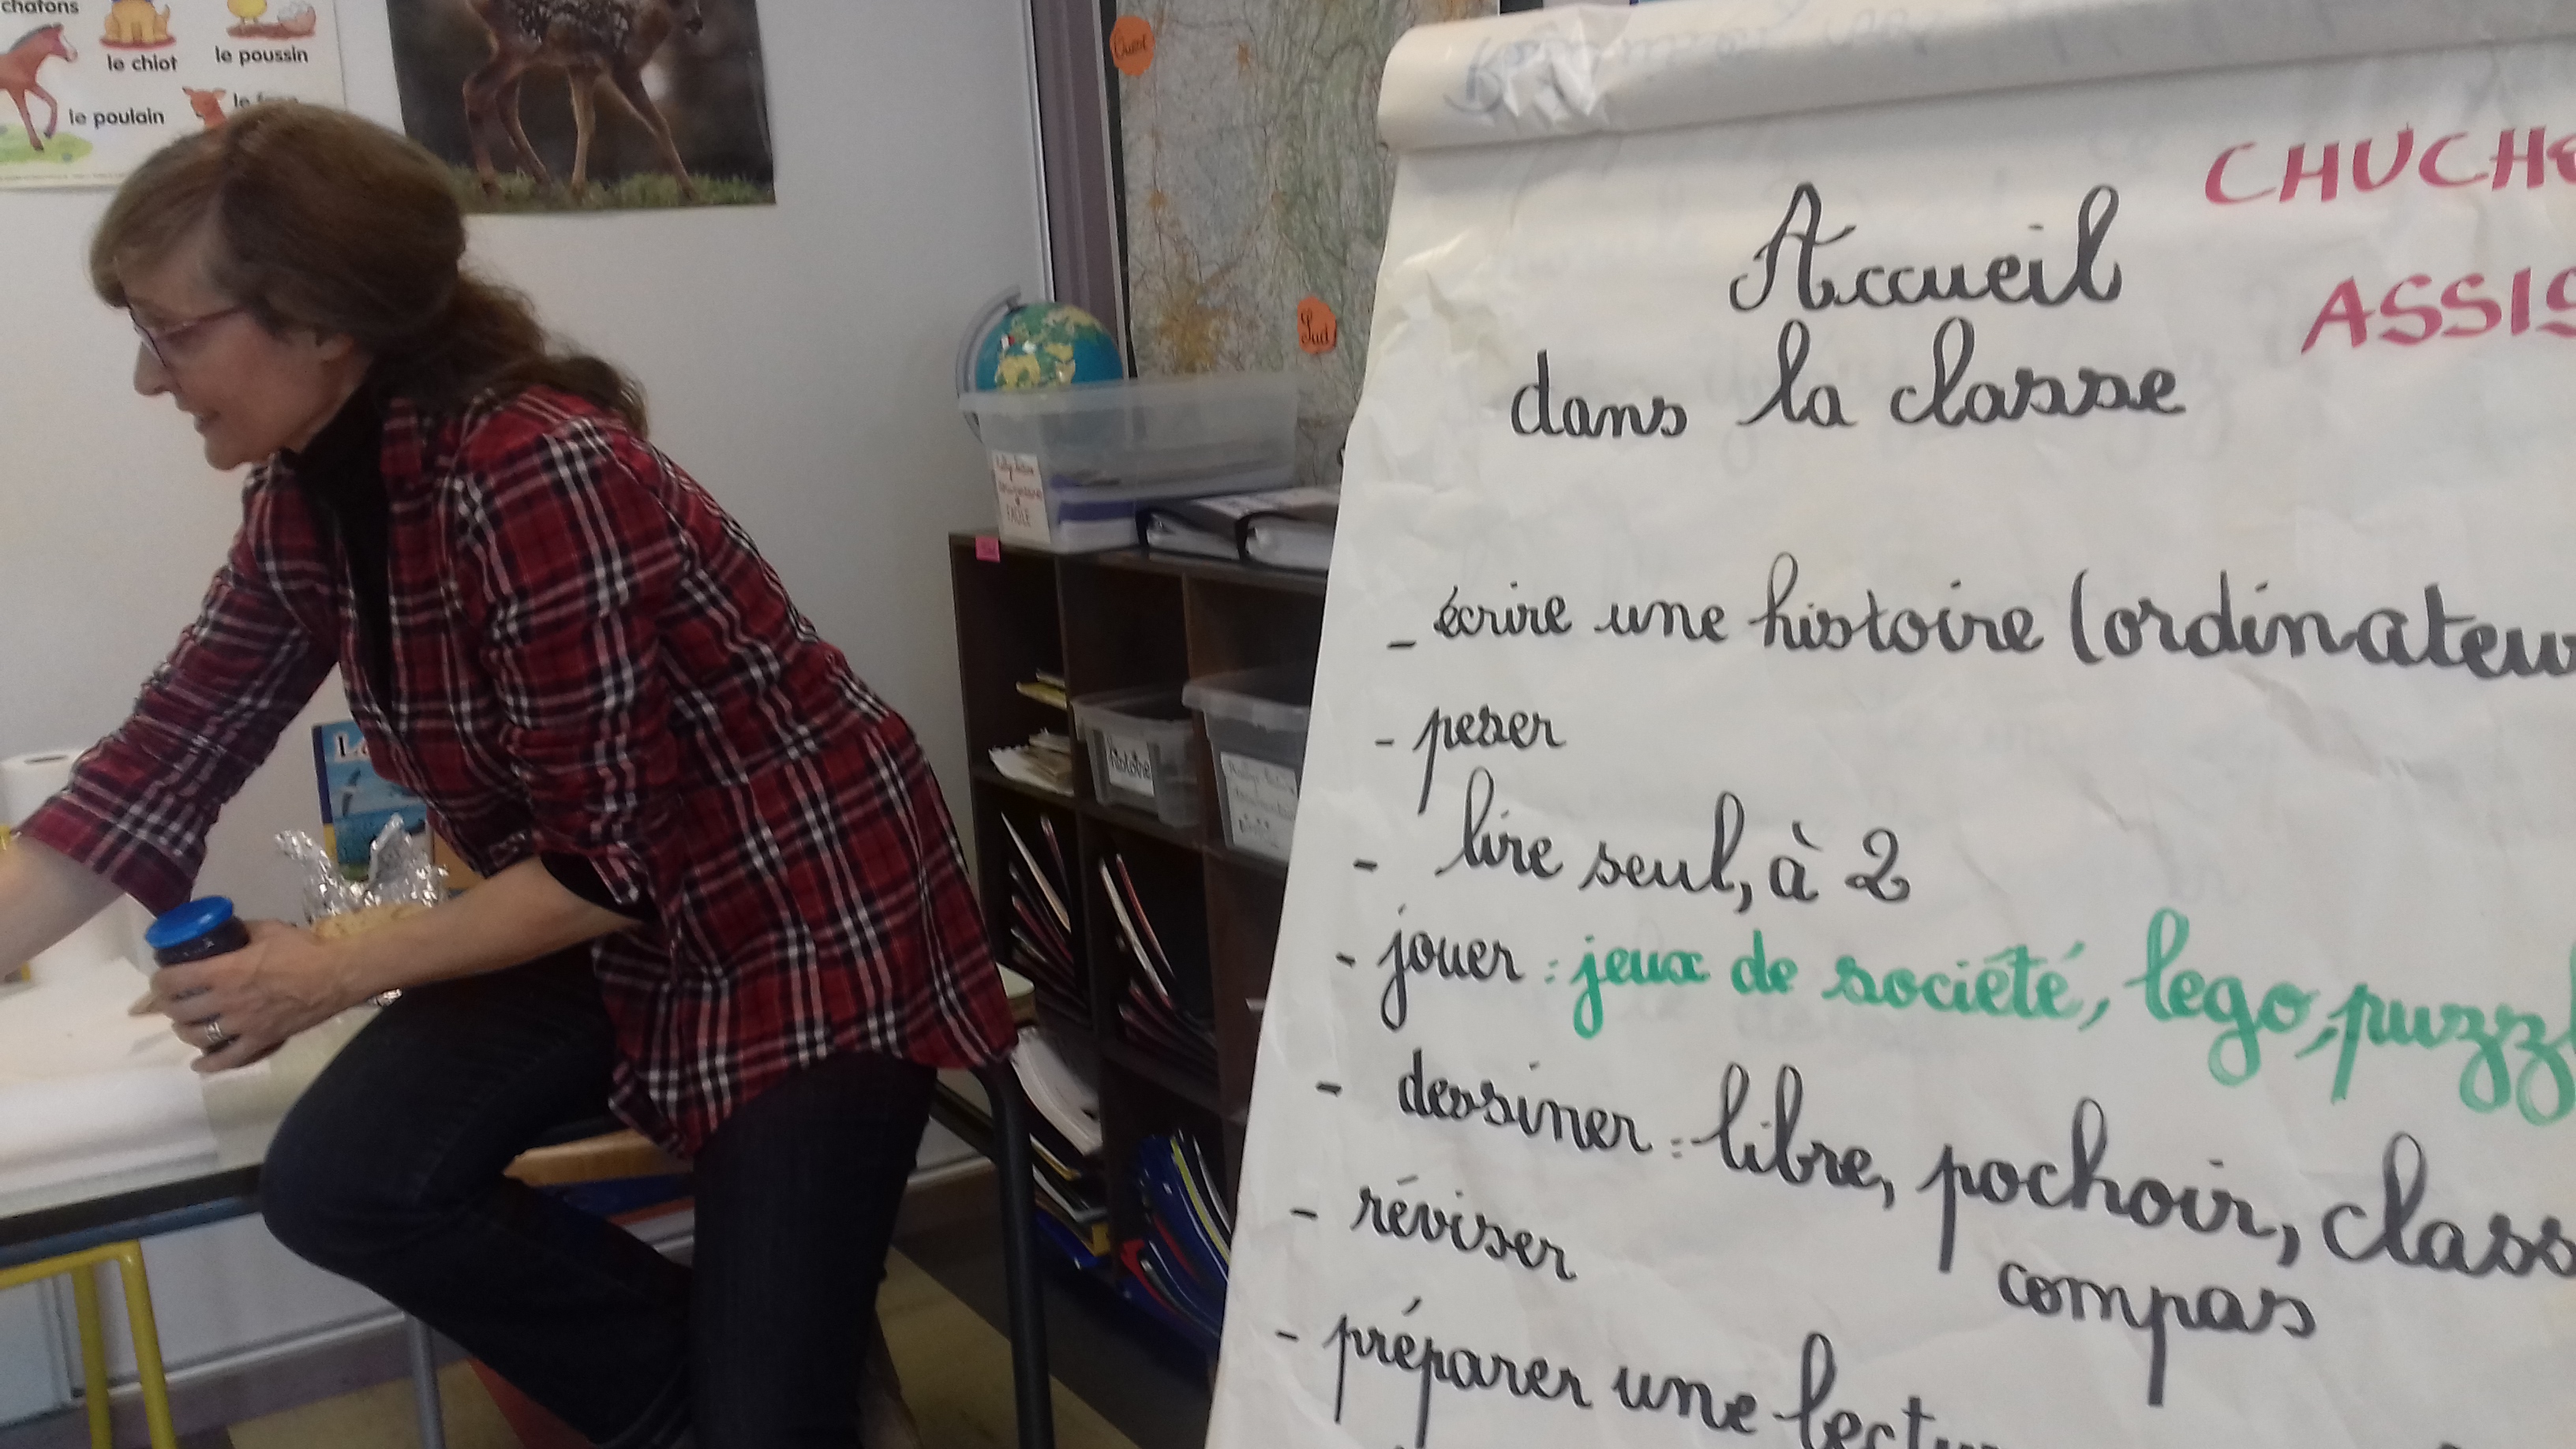 chatons
le chiot
le poussin
le poulain
Ouest
Sud
FACILE
histoire
CHUCH
ASSIS
Accueil
dans la classe
- écrire une histoire (ordinateu
- peser
- lire seul, à 2
- jouer : jeux de société, lego, puzzl
- dessiner : libre, pochoir, class
compas
- réviser
- préparer une lectu